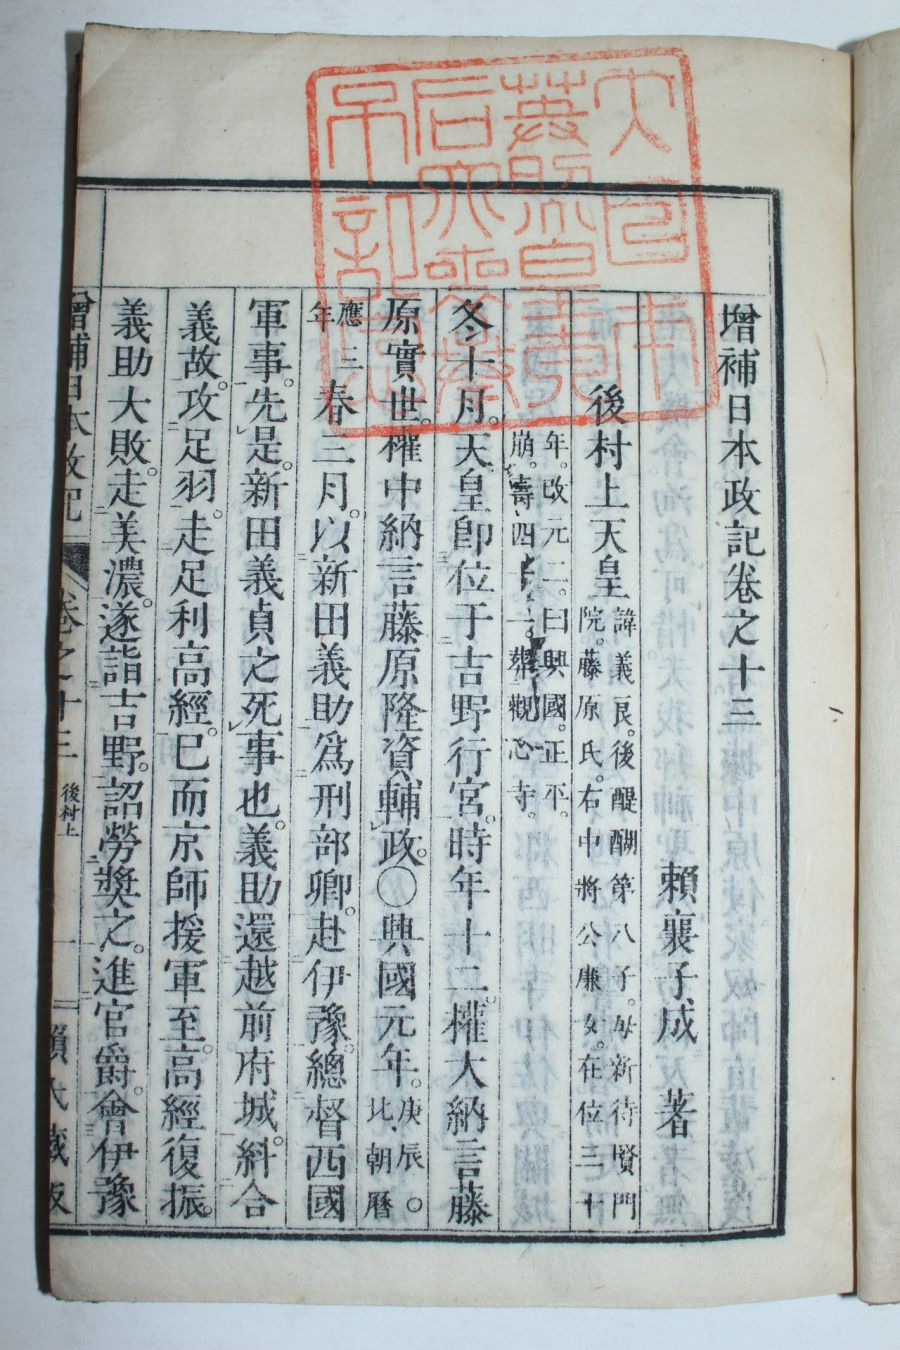 增補日本政記卷之十三
賴襄子成 著
後村上天皇 諱義良。後醍醐第八子。母新待賢門
院。藤原氏。右中將公廉女。在位三十
年。改元二。曰興國。正平。
崩。壽四十一。葬觀心寺。
冬十月。天皇卽位于吉野行宮。時年十二。權大納言藤
原實世。權中納言藤原隆資輔政。〇興國元年。庚辰。〇
北朝曆
應三
年春三月。以新田義助爲刑部卿。赴伊豫。總督西國
軍事。先是。新田義貞之死事也。義助還越前府城。糾合
義故。攻足羽。走足利高經。已而京師援軍至。高經復振。
義助大敗。走美濃。遂詣吉野。詔勞獎之。進官爵。會伊豫
增補日本政記 卷之十三 後村上 一 賴氏藏版